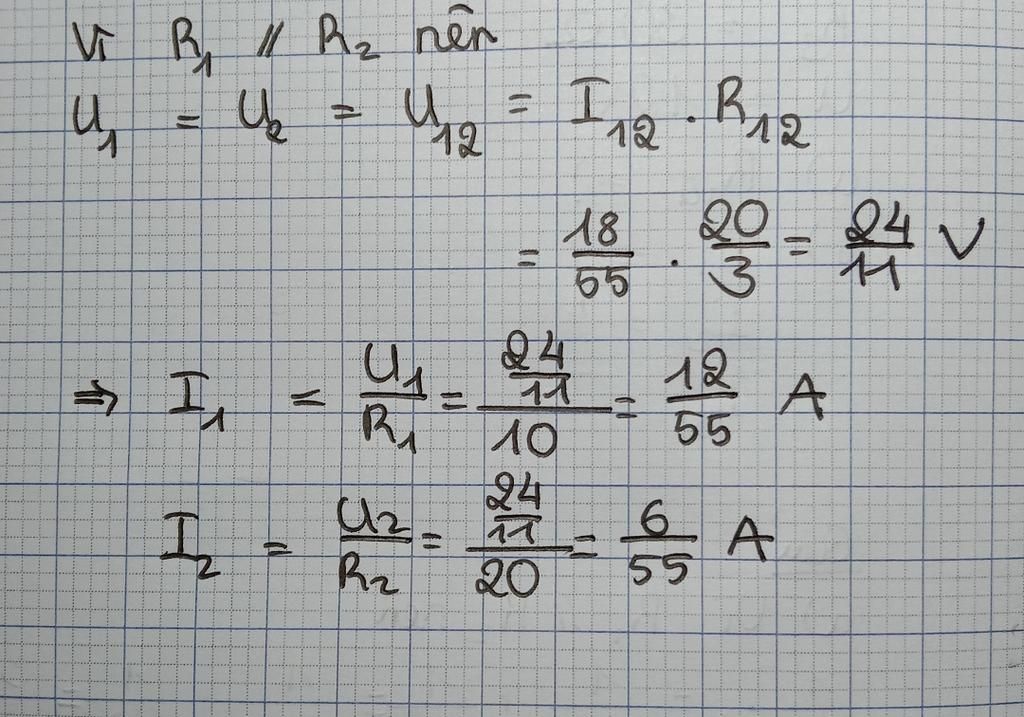 Vì R₁ // R₂ nên
U₁ = U₂ = U₁₂ = I₁₂ . R₁₂
= 18/55 . 20/3 = 24/11 V
⇒ I₁ = U₁/R₁ = (24/11)/10 = 12/55 A
I₂ = U₂/R₂ = (24/11)/20 = 6/55 A